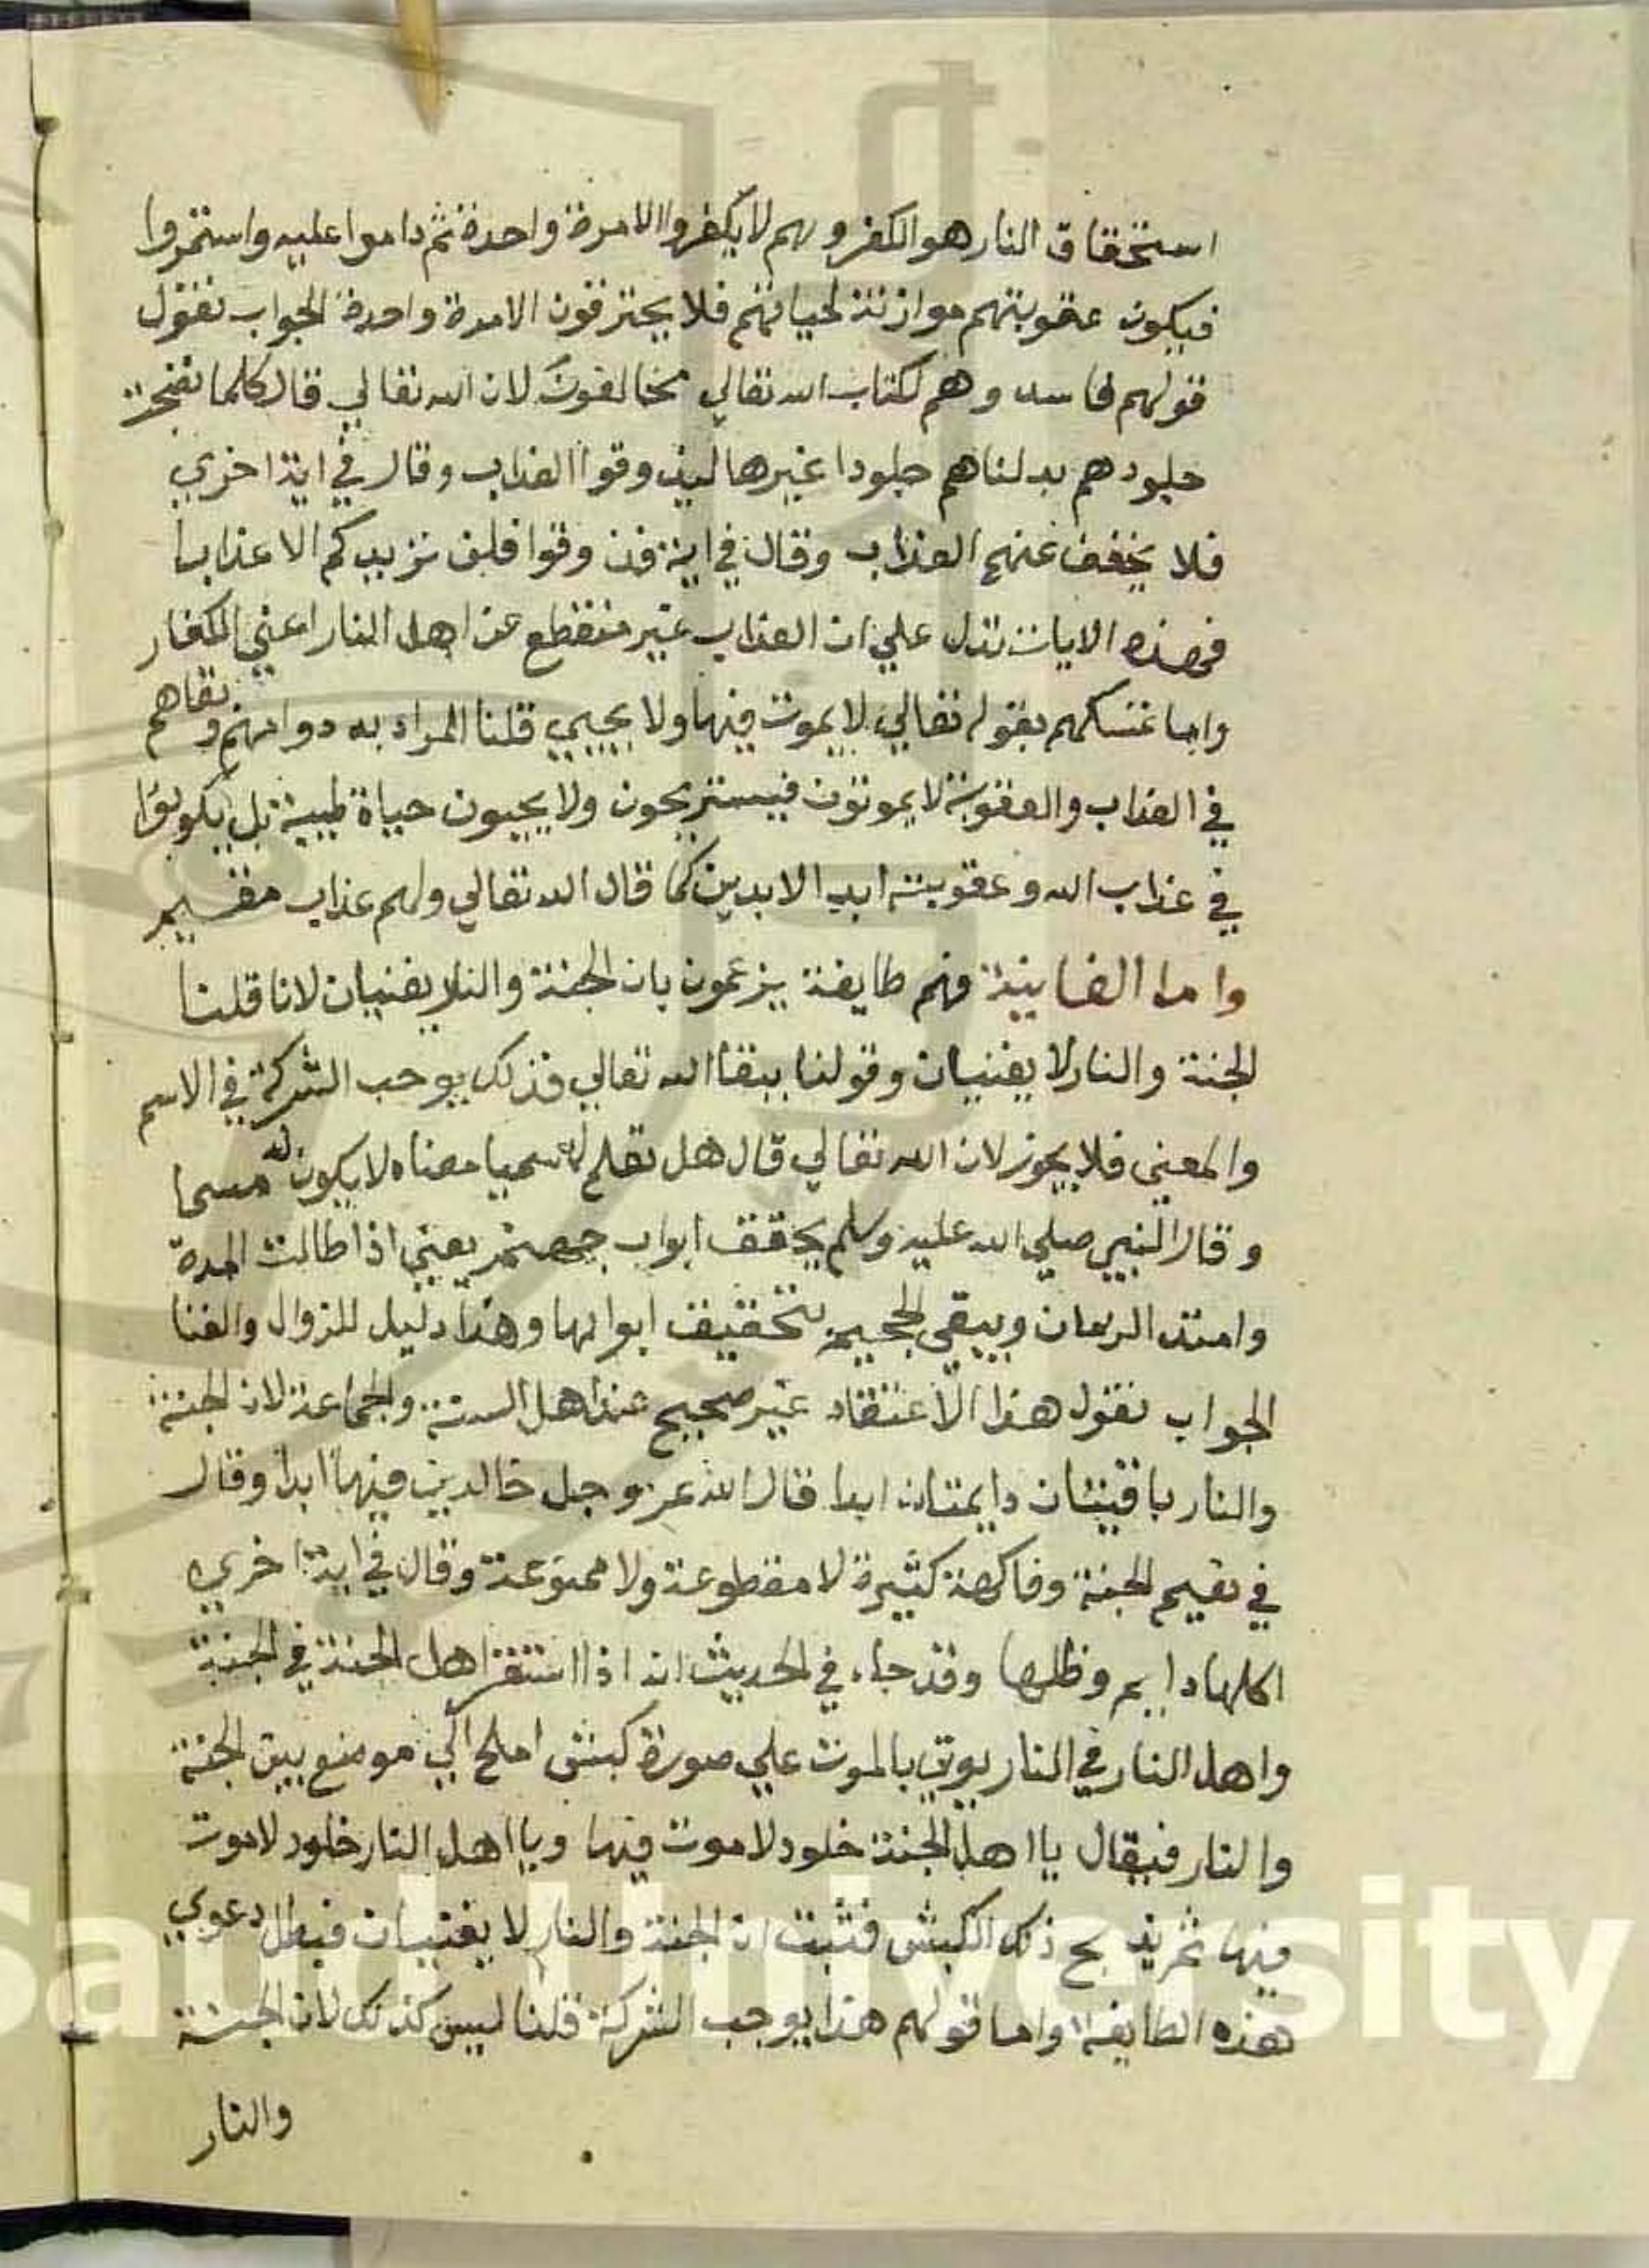 استحقاق النار هو الكفر وهم لا يكفروا الا مرة واحدة ثم داموا عليه واستمروا
فيكون عقوبتهم موازنة لحياتهم فلا يحترقون الا مرة واحدة الجواب نقول
قولهم فاسد وهم لكتاب الله تعالي مخالفون لان الله تعالي قال كلما نضجت
جلودهم بدلناهم جلودا غيرها ليذوقوا العذاب وقال في اية اخري
فلا يخفف عنهم العذاب وقال في اية فذوقوا فلن نزيدكم الا عذابا
فهذه الايات تدل علي ان العذاب غير منقطع عن اهل النار اعني الكفار
واما تمسكهم بقوله تعالي لا يموت فيها ولا يحيي قلنا المراد به دوامهم وبقاهم
في العذاب والعقوبة لا يموتون فيستريحون ولا يحييون حياة طيبة بل يكونوا
في عذاب الله وعقوبته ابد الابدين كما قال الله تعالي ولهم عذاب مقيم
واما الفانية فهم طايفة يزعمون بان الجنة والنار يفنيان لانا قلنا
الجنة والنار لا يفنيان وقولنا ببقا الله تعالي فذلك يوجب الشركة في الاسم
والمعني فلا يجوز لان الله تعالي قال هل تعلم له سميا معناه لا يكون له مسما
وقال النبي صلي الله عليه وسلم يخفف ابواب جهنم يعني اذا طالت المدة
وامتد الزمان ويبقي الجحيم بتخفيف ابوابها وهذا دليل للزوال والفنا
الجواب نقول هذا الاعتقاد غير صحيح عند اهل السنة والجماعة لان الجنة
والنار باقيتان دايمتان ابدا قال الله عز وجل خالدين فيها ابدا وقال
في نعيم الجنة وفاكهة كثيرة لا مقطوعة ولا ممنوعة وقال في اية اخري
اكلها دايم وظلها وقد جاء في الحديث انه اذا استقر اهل الجنة في الجنة
واهل النار في النار يوتي بالموت علي صورة كبش املح الي موضع بين الجنة
والنار فيقال يا اهل الجنة خلود لا موت فيها ويا اهل النار خلود لا موت
فيها ثم يذبح ذلك الكبش فثبت ان الجنة والنار لا يفنيان فبطل دعوي
هذه الطايفة واما قولهم هذا يوجب الشركة قلنا ليس كذلك لان الجنة
والنار
Saud University